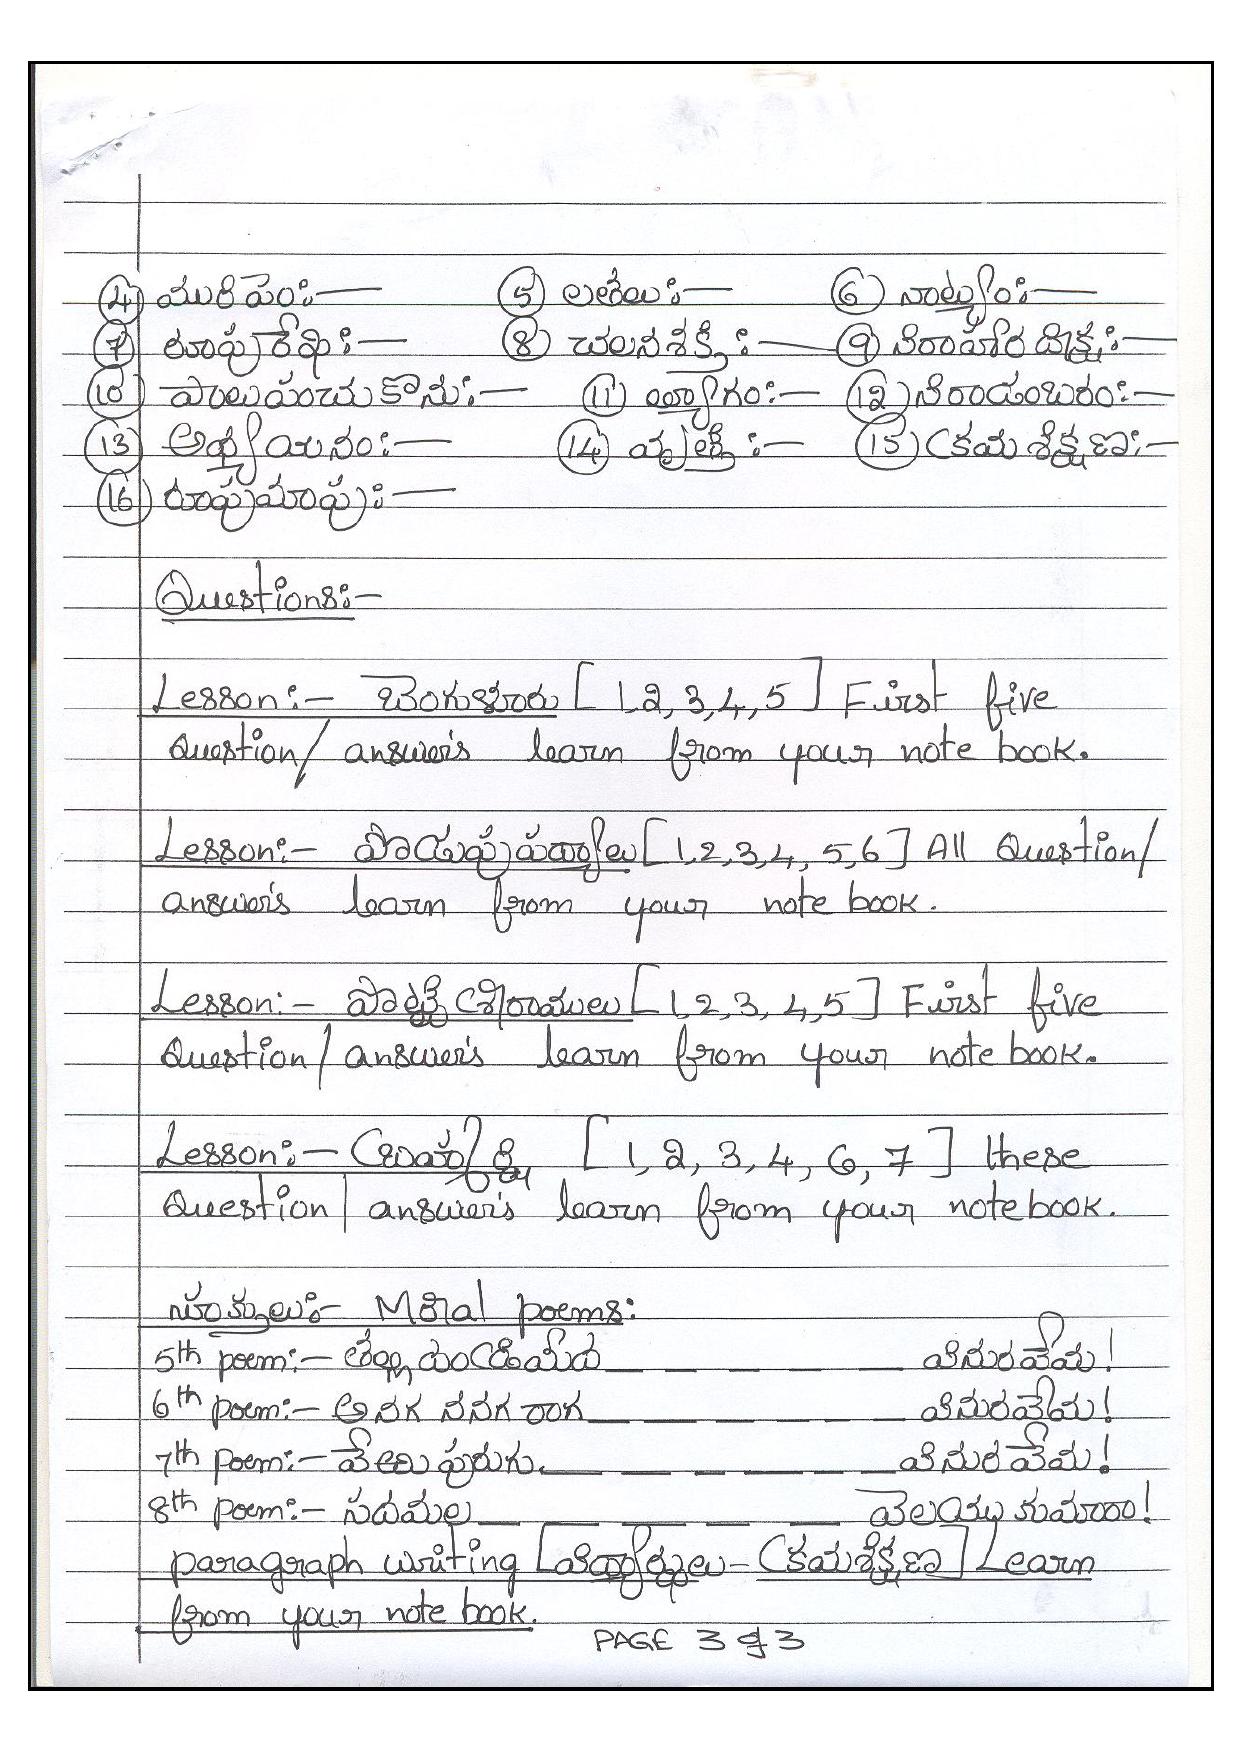 ④ మురిపెం:— ⑤ లతలు:— ⑥ నాట్యం:—
⑦ రూపురేఖ:— ⑧ చలనశక్తి:— ⑨ నిరాహార దీక్ష:—
⑩ పాలుపంచుకొను:— ⑪ త్యాగం:— ⑫ నిరాడంబరం:—
⑬ అధ్యయనం:— ⑭ వృత్తి:— ⑮ క్రమశిక్షణ:—
⑯ రూపుమాపు:—
Questions:-
Lesson:- బెంగుళూరు [1,2,3,4,5] First five
Question/answer's learn from your note book.
Lesson:- పొడుపు పద్యాలు [1,2,3,4,5,6] All Question/
answer's learn from your note book.
Lesson:- పొట్టి శ్రీరాములు [1,2,3,4,5] First five
Question/answer's learn from your note book.
Lesson:- [1,2,3,4,6,7] these
Question/answer's learn from your note book.
సూక్తులు:- Moral poems:
5th poem:- తల్లి దండ్రి మీద — — — — వినురవేమ!
6th poem:- అనగ ననగ రాగ — — — — వినురవేమ!
7th poem:- వేరు పురుగు — — — — వినురవేమ!
8th poem:- సదమల — — — — వెలయు కుమారా!
paragraph writing [విద్యార్థులు - క్రమశిక్షణ] Learn
from your note book.
PAGE 3 of 3